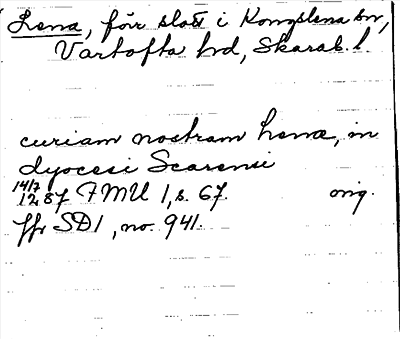 Lena, förr slott i Kongslena sn,
Vartofta hd, Skarab. l.
curiam nostram Lenæ, in
dyocesi Scarensi
14/7
1287 FMU 1, s. 67. orig.
jfr SD 1, no. 941.